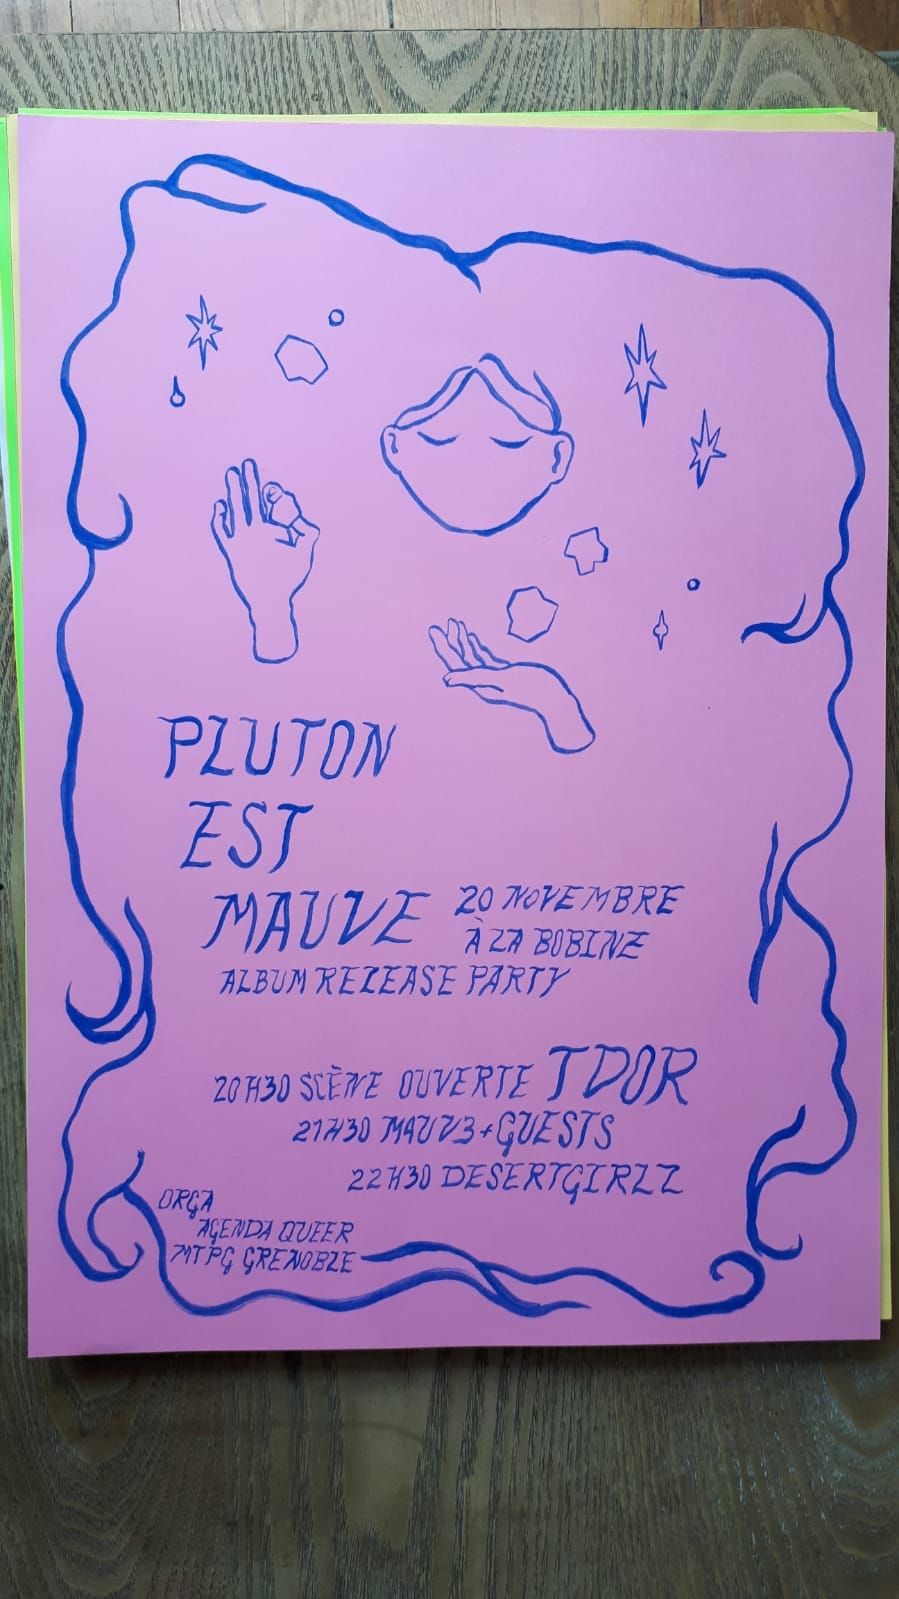 PLUTON
EST
MAUVE
20 NOVEMBRE
À LA BOBINE
ALBUM RELEASE PARTY
20H30 SCÈNE OUVERTE TDOR
21H30 MAUV3+GUESTS
22H30 DESERTGIRLZ
ORGA
AGENDA QUEER
MTPG GRENOBLE